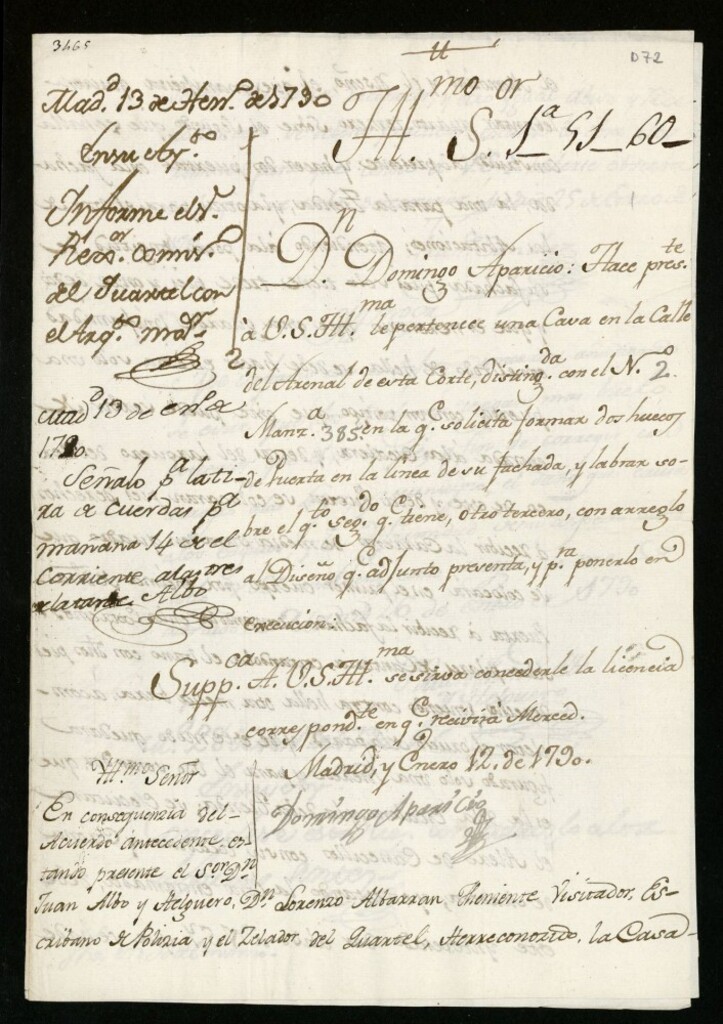 3465
D72
Yll.mo S.or 1a_51_60_
Mad.d 13 de Hen.o de 1790
En su Ay.to
Informe el S.r
Rexo.or Comis.o
del Quartel con
el Arq.to m.or
D.n Domingo Aparicio: Hace pres.te
à V.S.Yll.ma le pertenece una Casa en la Calle
del Arenal de esta Corte, disting.da con el N.o 2.
Manz.a 385. en la q.e solicita formar dos huecos
de Puerta en la linea de su fachada, y labrar so-
bre el q.to seg.do q.e tiene, otro tercero, con arreglo
al Diseño q.e adjunto presenta, y p.ra ponerlo en
execucion:
Mad.d 13 de en.o de
1790.
Señalo p.a la ti-
ra de cuerdas p.a
mañana 14 de el
Corriente a las tres
de la tarde Albo
Supp.ca A. V.S.Yll.ma se sirva concederle la licencia
correspond.te en q.e recivirà Merced.
Madrid, y Enero 12. de 1790.
Domingo Aparicio
Yll.mo Señor
En consequenzia del
Acuerdo antecedente, es-
tando presente el S.or D.n
Juan Albo y Helguero, D.n Lorenzo Albarran Theniente Visitador, Es-
cribano de Polizia y el Zelador del Quartel, He reconozido, la Casa